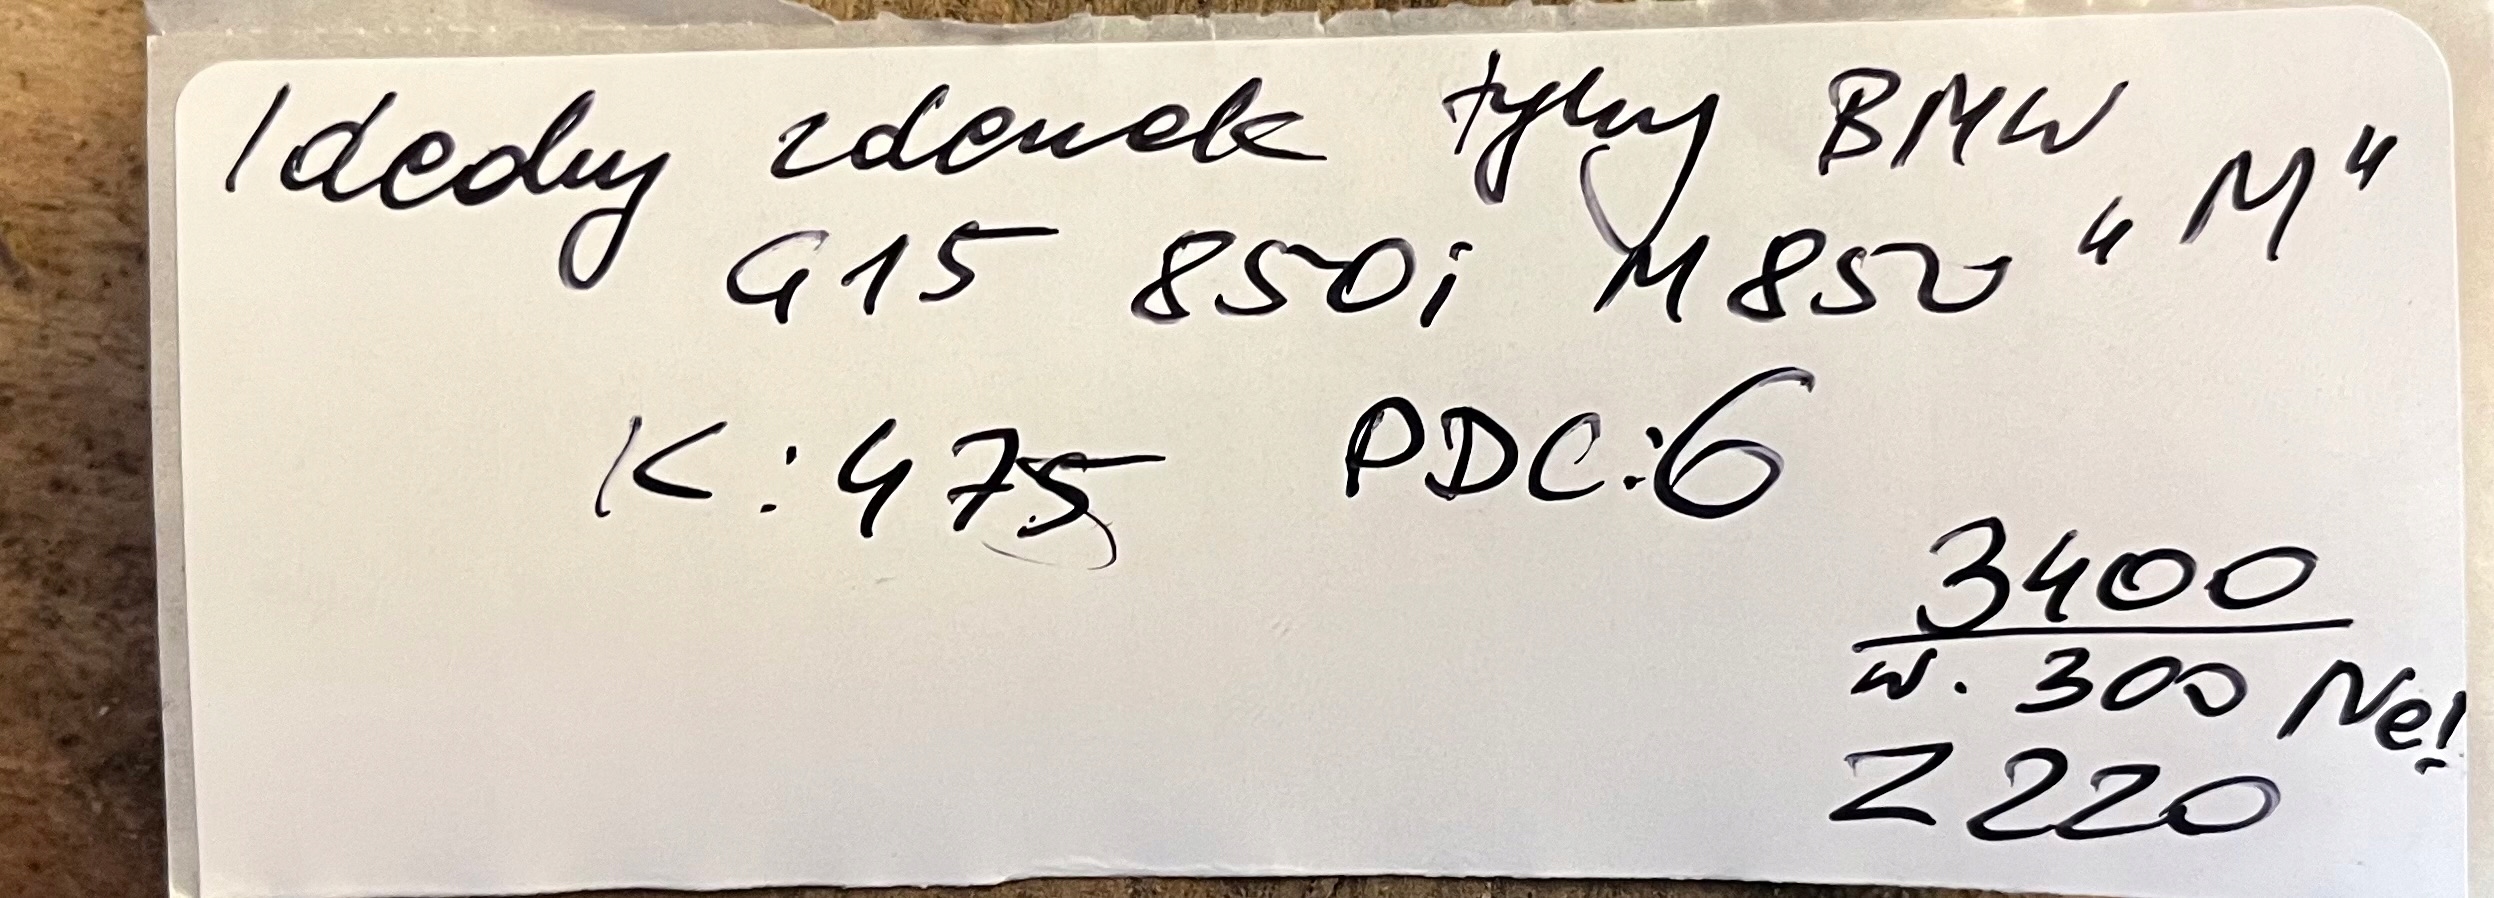 Idealny zderzak tylny BMW
G15 850i M850 "M"
K: 475 PDC: 6
3400
w. 300 Ne!
Z 220